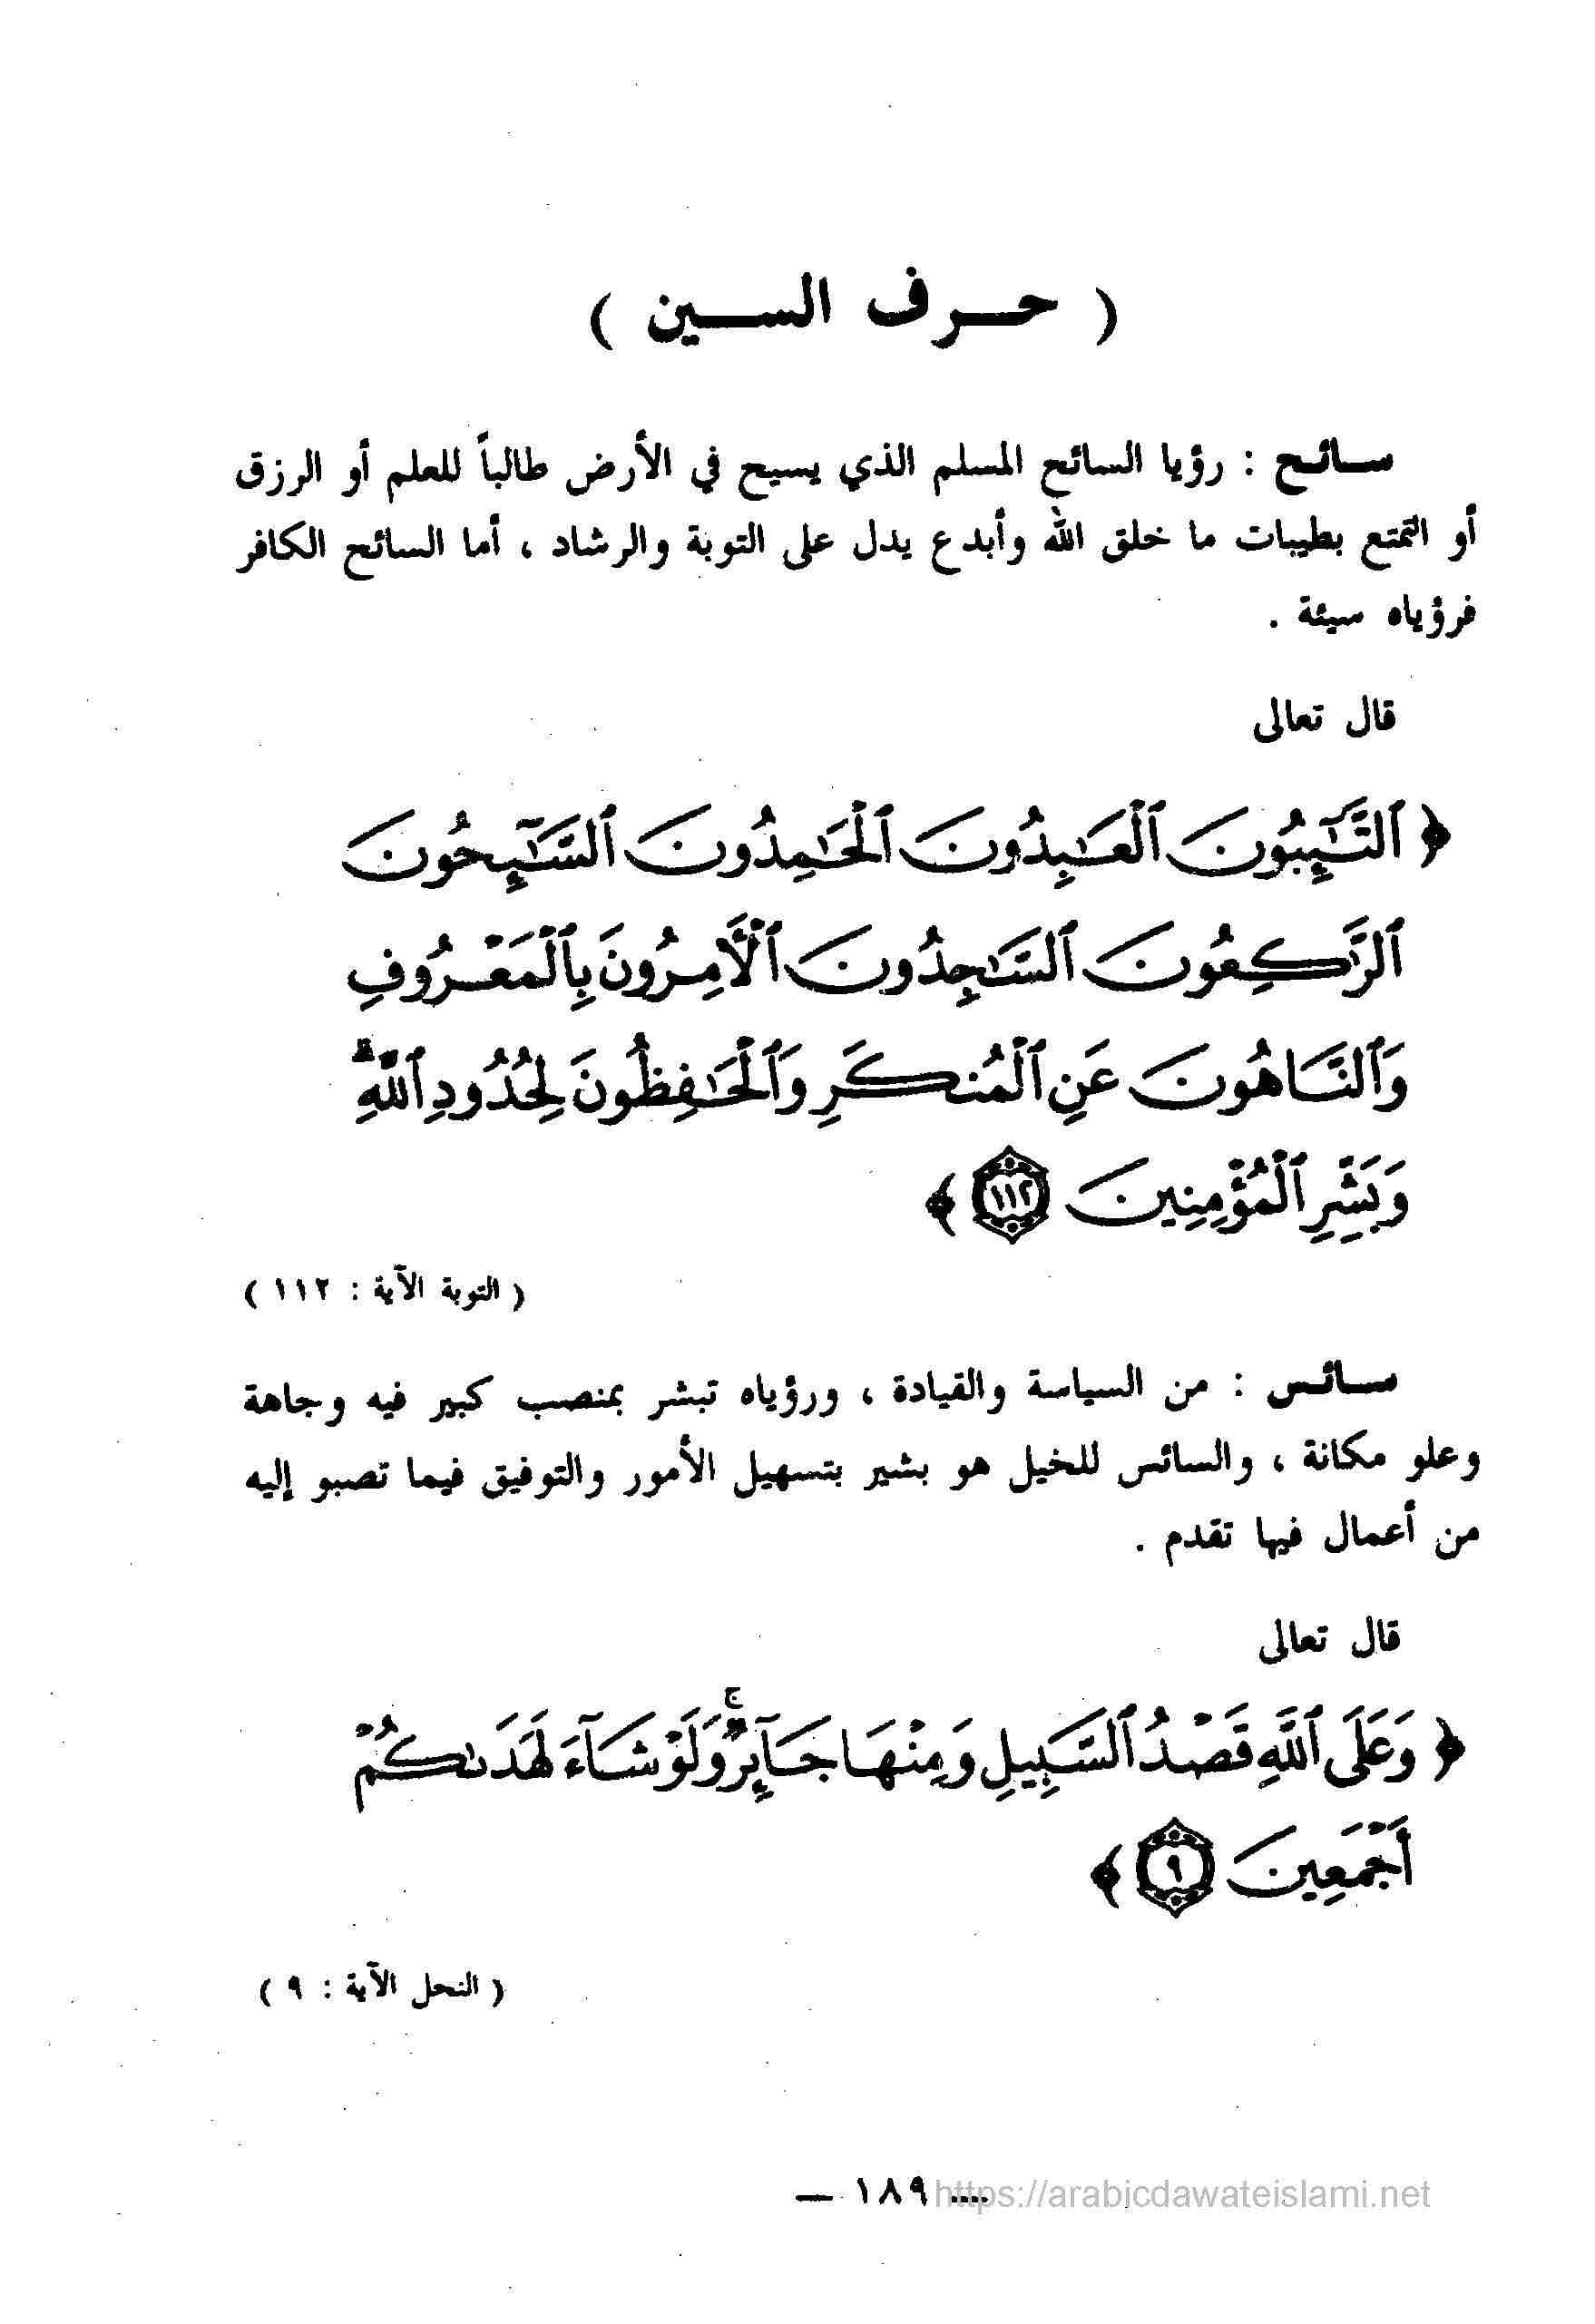 ( حرف السين )
سائح : رؤيا السائح المسلم الذي يسيح في الأرض طالباً للعلم أو الرزق
أو التمتع بطيبات ما خلق الله وأبدع يدل على التوبة والرشاد ، أما السائح الكافر
فرؤياه سيئة .
قال تعالى
﴿ ٱلتَّـٰٓئِبُونَ ٱلْعَـٰبِدُونَ ٱلْحَـٰمِدُونَ ٱلسَّـٰٓئِحُونَ
ٱلرَّٰكِعُونَ ٱلسَّـٰجِدُونَ ٱلْـَٔامِرُونَ بِٱلْمَعْرُوفِ
وَٱلنَّاهُونَ عَنِ ٱلْمُنكَرِ وَٱلْحَـٰفِظُونَ لِحُدُودِ ٱللَّهِ ۗ
وَبَشِّرِ ٱلْمُؤْمِنِينَ ١١٢ ﴾
( التوبة الآية : ١١٢ )
سائس : من السياسة والقيادة ، ورؤياه تبشر بمنصب كبير فيه وجاهة
وعلو مكانة ، والسائس للخيل هو بشير بتسهيل الأمور والتوفيق فيما تصبو إليه
من أعمال فيها تقدم .
قال تعالى
﴿ وَعَلَى ٱللَّهِ قَصْدُ ٱلسَّبِيلِ وَمِنْهَا جَآئِرٌ ۚ وَلَوْ شَآءَ لَهَدَىٰكُمْ
أَجْمَعِينَ ٩ ﴾
( النحل الآية : ٩ )
— ١٨٩ —
https://arabicdawateislami.net